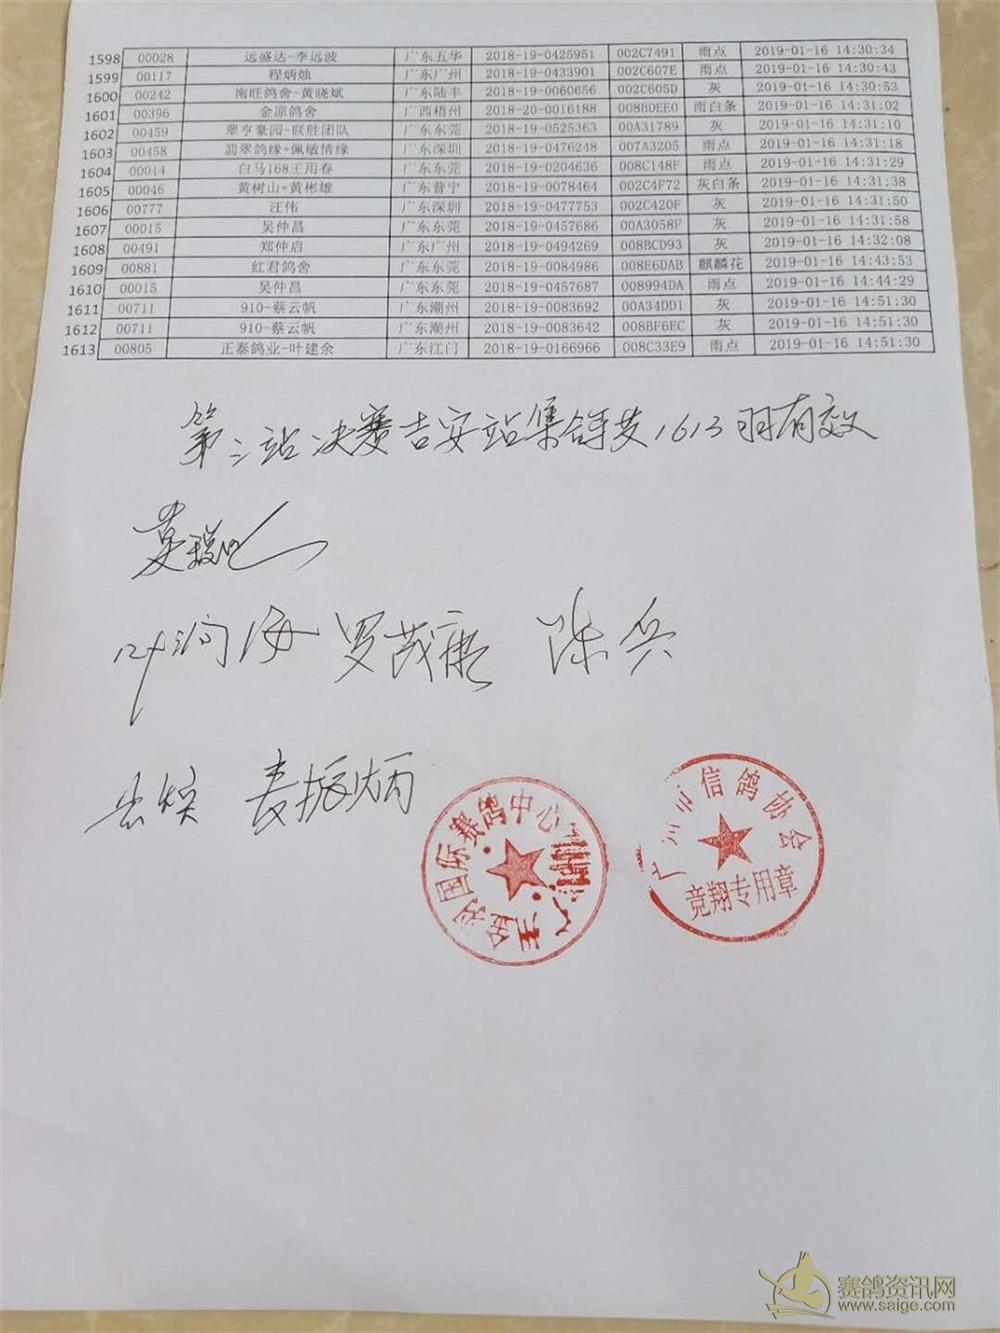 1598 00028 远盛达-李远波 广东五华 2018-19-0425951 002C7491 雨点 2019-01-16 14:30:34
1599 00117 程炳烛 广东广州 2018-19-0433901 002C607E 雨点 2019-01-16 14:30:43
1600 00242 南旺鸽舍-黄晓斌 广东陆丰 2018-19-0060656 002C605D 灰 2019-01-16 14:30:53
1601 00396 金原鸽舍 广西梧州 2018-20-0016188 008BDEE0 雨白条 2019-01-16 14:31:02
1602 00459 翠亨豪园-联胜团队 广东东莞 2018-19-0525363 00A31789 灰 2019-01-16 14:31:10
1603 00458 翡翠鸽缘+佩敏情缘 广东深圳 2018-19-0476248 007A3205 雨点 2019-01-16 14:31:18
1604 00014 白马168王用春 广东东莞 2018-19-0204636 008C148F 雨点 2019-01-16 14:31:29
1605 00046 黄树山+黄彬雄 广东普宁 2018-19-0078464 002C4F72 灰白条 2019-01-16 14:31:38
1606 00777 汪伟 广东深圳 2018-19-0477753 002C420F 灰 2019-01-16 14:31:50
1607 00015 吴仲昌 广东东莞 2018-19-0457686 00A3058F 灰 2019-01-16 14:31:58
1608 00491 郑仲启 广东广州 2018-19-0494269 008BCD93 灰 2019-01-16 14:32:08
1609 00881 红君鸽舍 广东东莞 2018-19-0084986 008E6DAB 麒麟花 2019-01-16 14:43:53
1610 00015 吴仲昌 广东东莞 2018-19-0457687 008994DA 雨点 2019-01-16 14:44:29
1611 00711 910-蔡云帆 广东潮州 2018-19-0083692 00A34DD1 灰 2019-01-16 14:51:30
1612 00711 910-蔡云帆 广东潮州 2018-19-0083642 008BF6EC 灰 2019-01-16 14:51:30
1613 00805 正泰鸽业-叶建余 广东江门 2018-19-0166966 008C33E9 雨点 2019-01-16 14:51:30
第三站决赛吉安站集鸽共1613羽有效
叶润海 罗茂康 陈兵
麦振炳
广州金羽国际赛鸽中心
广州市信鸽协会
竞翔专用章
赛鸽资讯网
www.saige.com